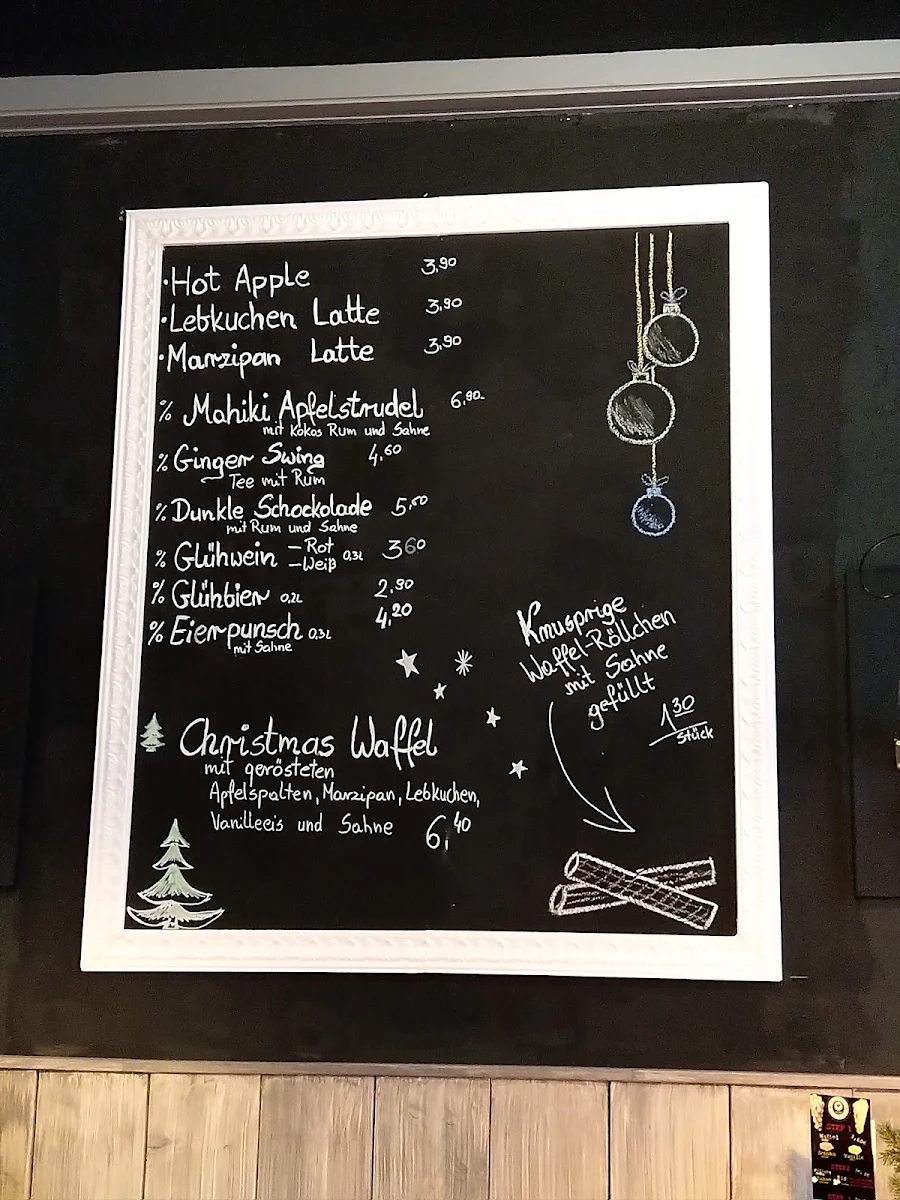 ·Hot Apple 3,90
·Lebkuchen Latte 3,90
·Marzipan Latte 3,90
% Mahiki Apfelstrudel 6,90
mit Kokos Rum und Sahne
% Ginger Swing 4,60
Tee mit Rum
% Dunkle Schockolade 5,50
mit Rum und Sahne
% Glühwein –Rot 0,3l 3 60
–Weiß
% Glühbier 0,2l 2,90
% Eierpunsch 0,3l 4,20
mit Sahne
Knusprige
Waffel-Röllchen
mit Sahne
gefüllt
1,30
Stück
Christmas Waffel
mit gerösteten
Apfelspalten, Marzipan, Lebkuchen,
Vanilleeis und Sahne 6,40
STEP 1
Waffel
STEP 2